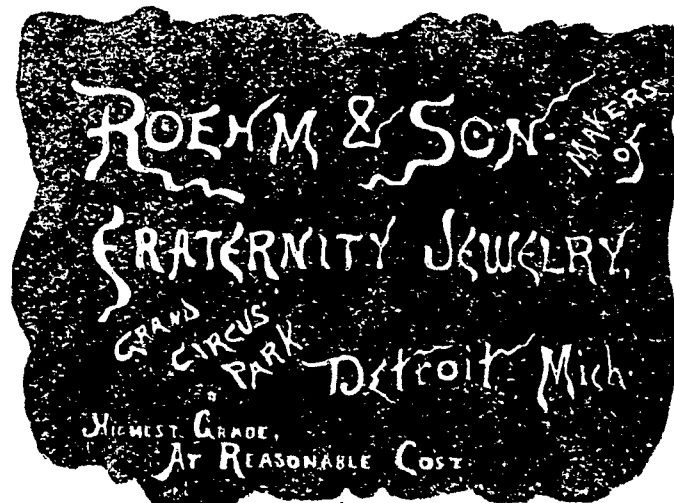 ROEHM & SON.
MAKERS
of
FRATERNITY JEWELRY,
GRAND
CIRCUS
PARK
Detroit Mich.
HIGHEST GRADE,
AT REASONABLE COST.